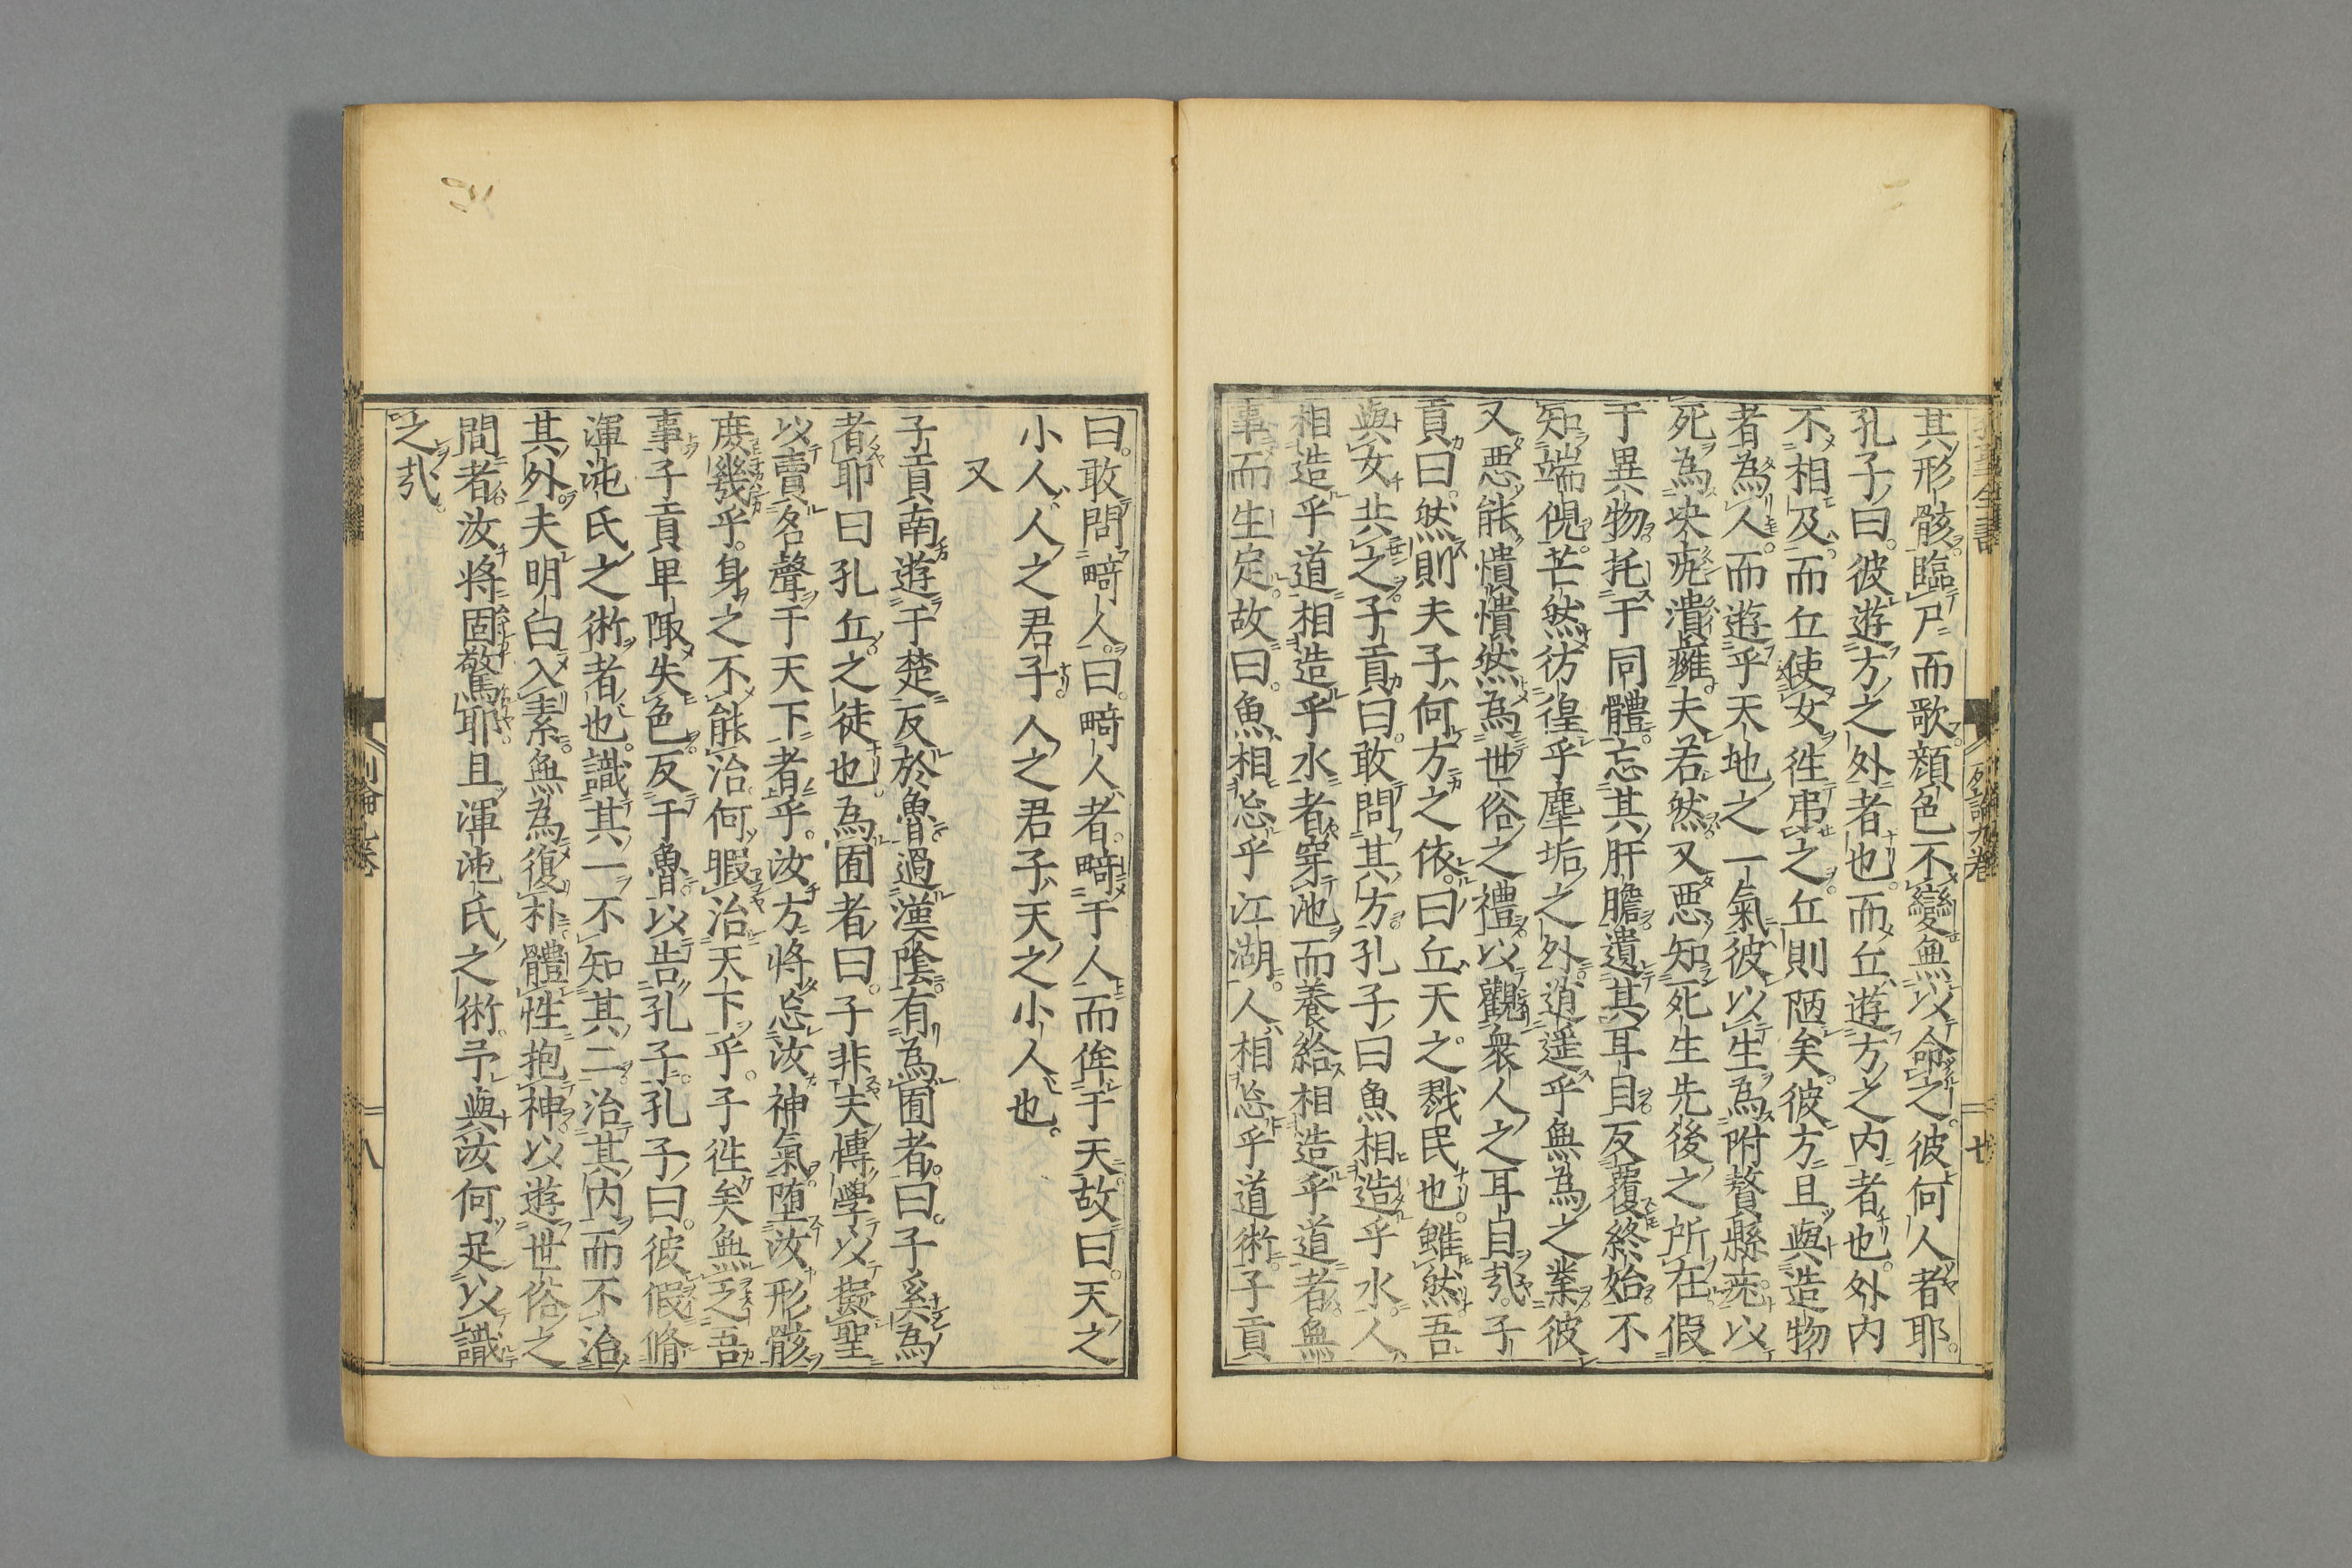 其形骸臨尸而歌顔色不變無以命之彼何人者耶
孔子曰彼遊方之外者也而丘遊方之内者也外内
不相及而丘使女徃弔之丘則陋矣彼方且與造物
者為人而遊乎天地之一氣彼以生為附贅縣疣以
死為決𤴯潰癰夫若然又惡知死生先後之所在假
于異物托于同體忘其肝膽遺其耳目反覆終始不
知端倪芒然彷徨乎塵垢之外逍遥乎無為之業彼
又惡能憒憒然為世俗之禮以觀衆人之耳目哉子
貢曰然則夫子何方之依曰丘天之戮民也雖然吾
與女共之子貢曰敢問其方孔子曰魚相造乎水人
相造乎道相造乎水者穿池而養給相造乎道者無
事而生定故曰魚相忘乎江湖人相忘乎道術子貢
曰敢問畸人曰畸人者畸于人而侔于天故曰天之
小人人之君子人之君子天之小人也
又
子貢南遊于楚反於魯過漢陰有為圃者曰子奚為
者耶曰孔丘之徒也為圃者曰子非夫博學以擬聖
以賣名聲于天下者乎汝方將忘汝神氣墮汝形骸
庶幾乎身之不能治何暇治天下乎子徃矣無乏吾
事子貢卑陬失色反于魯以告孔子孔子曰彼假脩
渾沌氏之術者也識其一不知其二治其内而不治
其外夫明白入素無為復朴體性抱神以遊世俗之
間者汝將固驚耶且渾沌氏之術予與汝何足以識
之哉
八